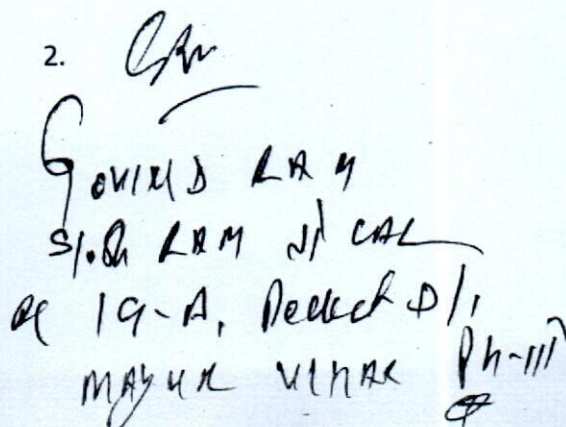 2.
GOVIND RAM
S/o Sh RAM JI LAL
19-A, Pocket D/1,
MAYUR VIHAR Ph-III